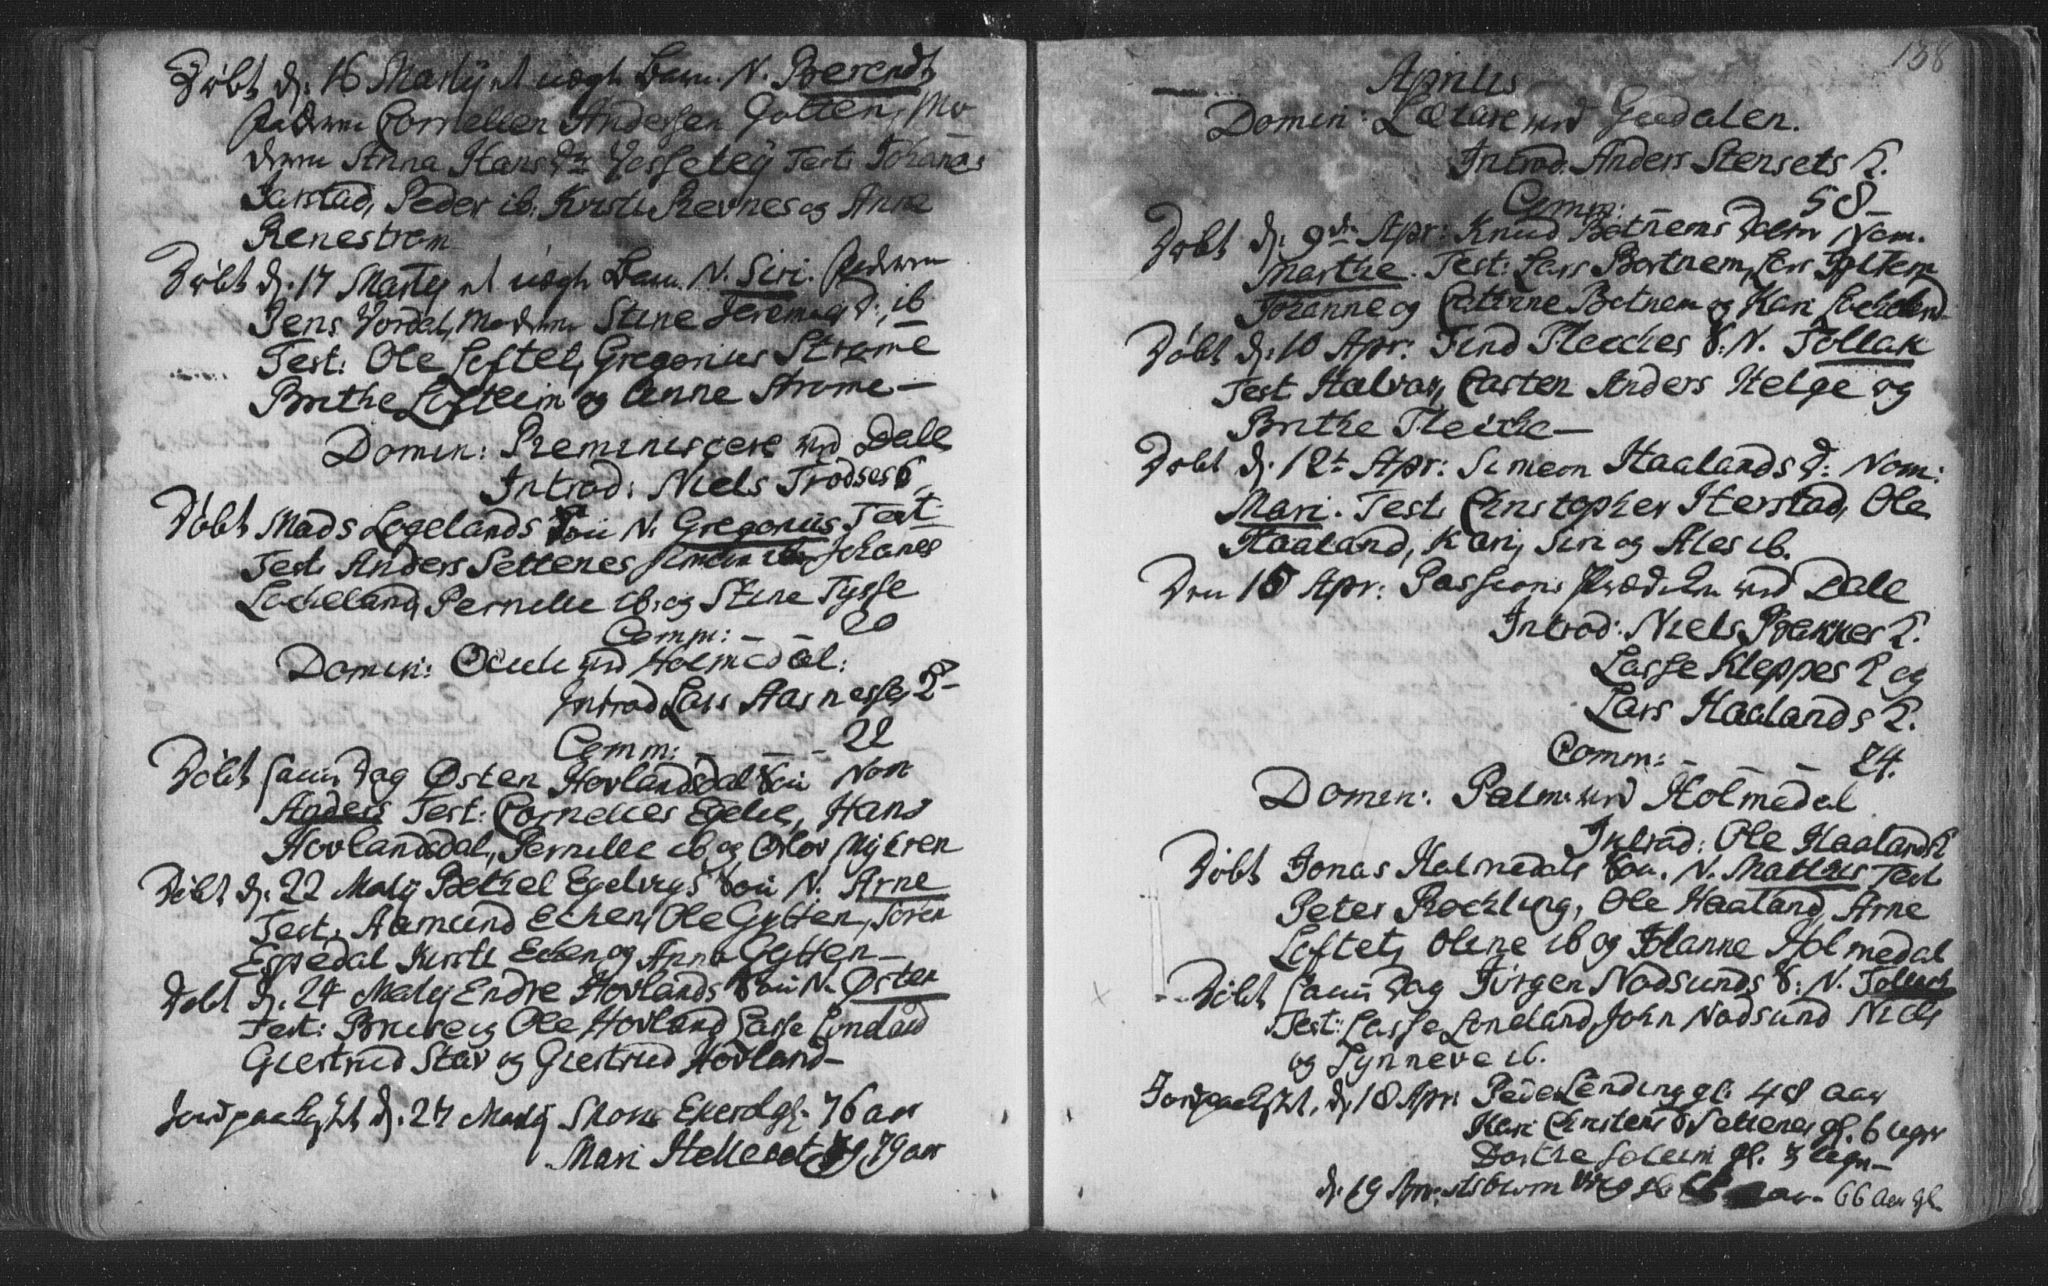 Døbt d. 16 Martij et uægte Barn. N. Berendt
Faderen Cornelien Andersen Gotten, Mo
deren Anna Hans Dtr Test: Johanes
Jarstad, Peder ib. Kirsti Revnes og Anna
Renestrøm
Døbt d. 17 Martij et uægte Barn. N. Siri. Faderen
Jens Vordal, Moderen Stine ib
Test: Ole Loftet, Gregorius Strøme
Brithe Lofteim og Anne Strøme —
Domin: Reminiscere ved Dale
Introd: Niels
Døbt Mads Løgelands Søn N. Gregorius Test:
Test: Anders Settenes Simon ib Johanes
Locheland, Pernille ib. og Stine Tysse
Comm: — — 20
Domin: Oculi ved Holmedal:
Introd Lars Aarnesse K —
Comm: — — 22
Døbt samme Dag Østen Hovlandsdal Søn Nom
Anders Test: Cornelies Eđelie, Hans
Hovlandsdal, Pernille ib og Olov Myhren
Døbt d. 22 Martij Bethel Egelvigs Søn N. Arne
Test. Aamund Echen, Ole Gytten, Søren
Espedal Kirsti Echen og Anna Gytten —
Døbt d. 24 Martij Endre Hovlands Søn N. Østen
Test: Ole Hovland Lasse
Giertrud Stav og Giertrud Hovland —
Jordpaakast d. 27 Martij gl. 76 aar
Mari Hellevot 79 aar
138
Aprilis
Domin: Lætare ved Guddalen.
Introd: Anders Stensets K.
Comm: — 58 —
Døbt d. 9de Apr: Knud Botnems Datter Nom.
Marthe. Test: Lars Bortnem, Lars
Johanne og Catrine Botnem og Kari Locheland
Døbt d. 10 Apr: Find Fleches S: N. Tollak
Test Halvar, Carsten Anders Helge og
Brithe Fleche —
Døbt d. 12t Apr: Simeon Haalands D: Nom:
Mari. Test. Christopher Herstad, Ole
Haaland, Kari, Siri og Ales ib.
Den 15 Apr: Passions Prædiken ved Dale
Introd: Niels Bakkes K.
Lasse Kleppes K og
Lars Haalands K.
Comm: — — — 24.
Domin: Palm: ved Holmedal
Introd: Ole Haalands K
Døbt Jonas Holmedals Søn. N. Mathis Test
Peter Rochling, Ole Haaland, Arne
Loftet, Oline ib og Johanne Holmedal
Døbt samme Dag Jørgen Nødsunds S: N.
Test: Lasse Loneland, John Nødsund Niels
og Synneve ib.
Jordpaakast, d. 18 Apr: Peder Lending gl. 48 aar
Kari Christens D Settenes gl. 6 uger
Dorthe Soleim gl. 3 uger —
d. 19 Apr: 66 aar gl.